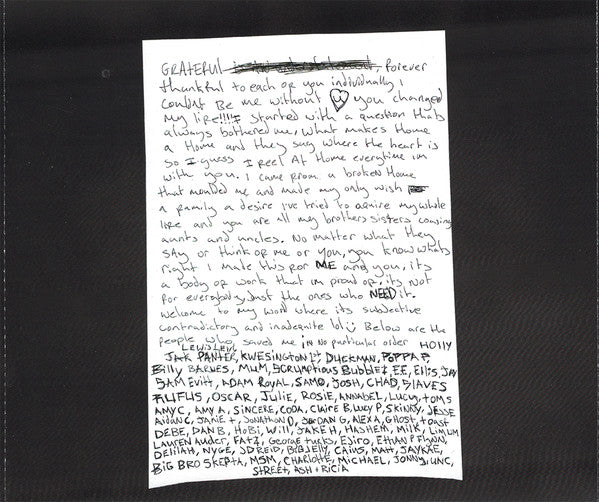 GRATEFUL , forever
thankful to each of you individually I
couldnt Be me without U you changed
my life!!!! I started with a question thats
always bothered me, what makes Home
a Home and they say where the heart is
so I guess I feel At Home everytime im
with you. I came from a broken Home
that moulded me and made my only wish
a family a desire I've tried to aquire my whole
life and you are all my brothers sisters cousins
aunts and uncles. No matter what they
say or think of me or you, you know whats
right I made this for ME and you, its
a body of work that im proud of, its not
for everybody, Just the ones who NEED it.
welcome to my world where its subjective
contradictory and inadequate lol Below are the
people who, saved me in No particular order HOLLY
Lewis Levi
Jack PANTER, KWESINGTON, DUCKMAN, POPPA P,
Billy BARNES, MUM, SCRUMPTIOUS Bubblez, EE, Ellis, JAY
SAM Evitt, ADAM Royal, SAMO, JOSH, CHAD, SLAVES
RUFUS, OSCAR, Julie, ROSIE, ANNABEL, Lucy, toms
AMY C, AMY A, SINCERE, CODA, Claire B, Lucy P, SKINNY, JESSE
Aidan C, Jamie T, Jonathon D, Jordan G, ALEXA, GHOST, toast
DEBE, DAN B, HoBi, Will, JAKE H, HASHEM, Milk, Lim Lim
Lauren Auder, FATZ, George tucks, Esiro, Ethan P Flynn,
Delilah, NYGE, JD REID, BobJelly, CAIUS, Matt, JAYKAE,
Big BRO SKEPTA, MSM, CHARLOTTE, MICHAEL, JONNY, UNC,
STREET, ASH + RICIA